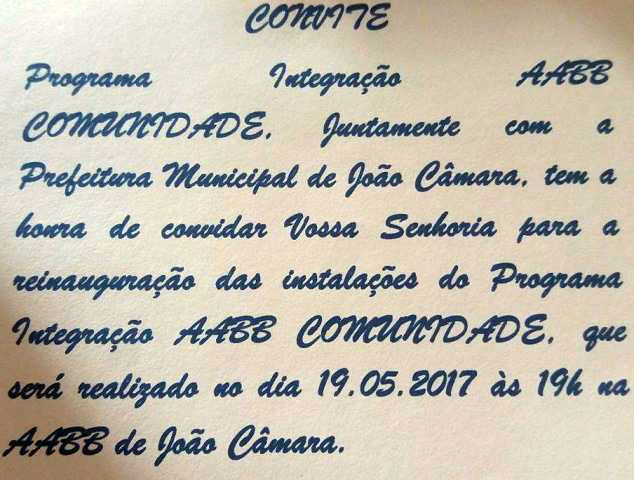 CONVITE
Programa Integração AABB
COMUNIDADE, Juntamente com a
Prefeitura Municipal de João Câmara, tem a
honra de convidar Vossa Senhoria para a
reinauguração das instalações do Programa
Integração AABB COMUNIDADE, que
será realizado no dia 19.05.2017 às 19h na
AABB de João Câmara.